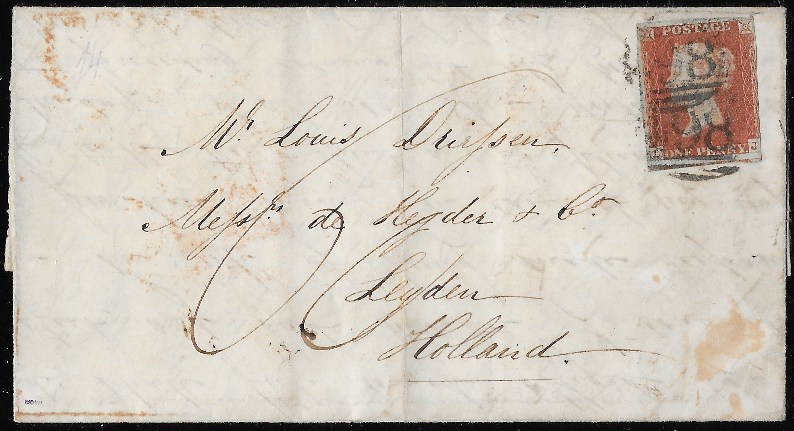 14
POSTAGE
ONE PENNY
Mr. Louis Driessen,
Messrs. de Heyder & Co.
Leyden
Holland.